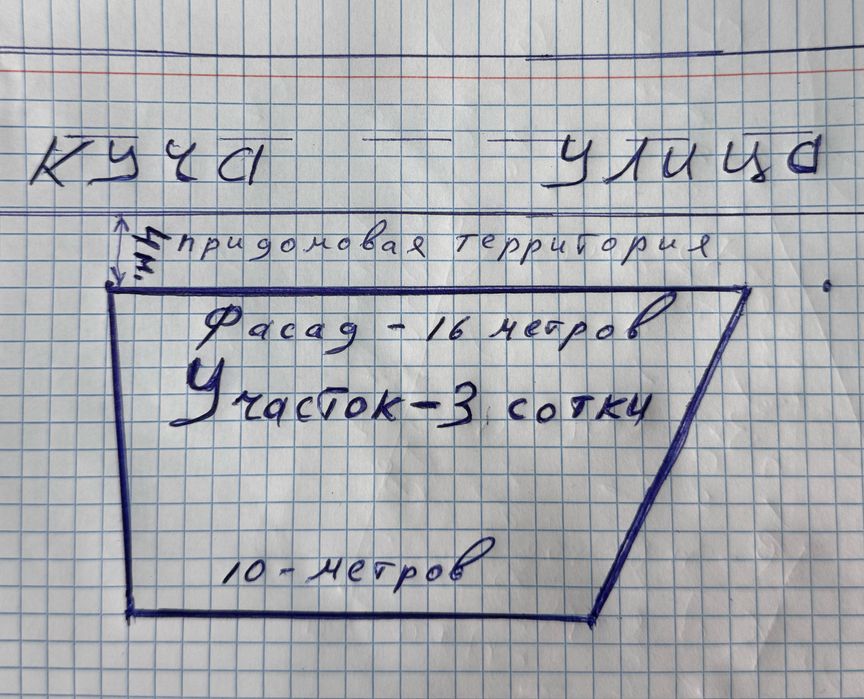 Куча улица
4м. придомовая территория
Фасад - 16 метров
Участок - 3 сотки
10 - метров